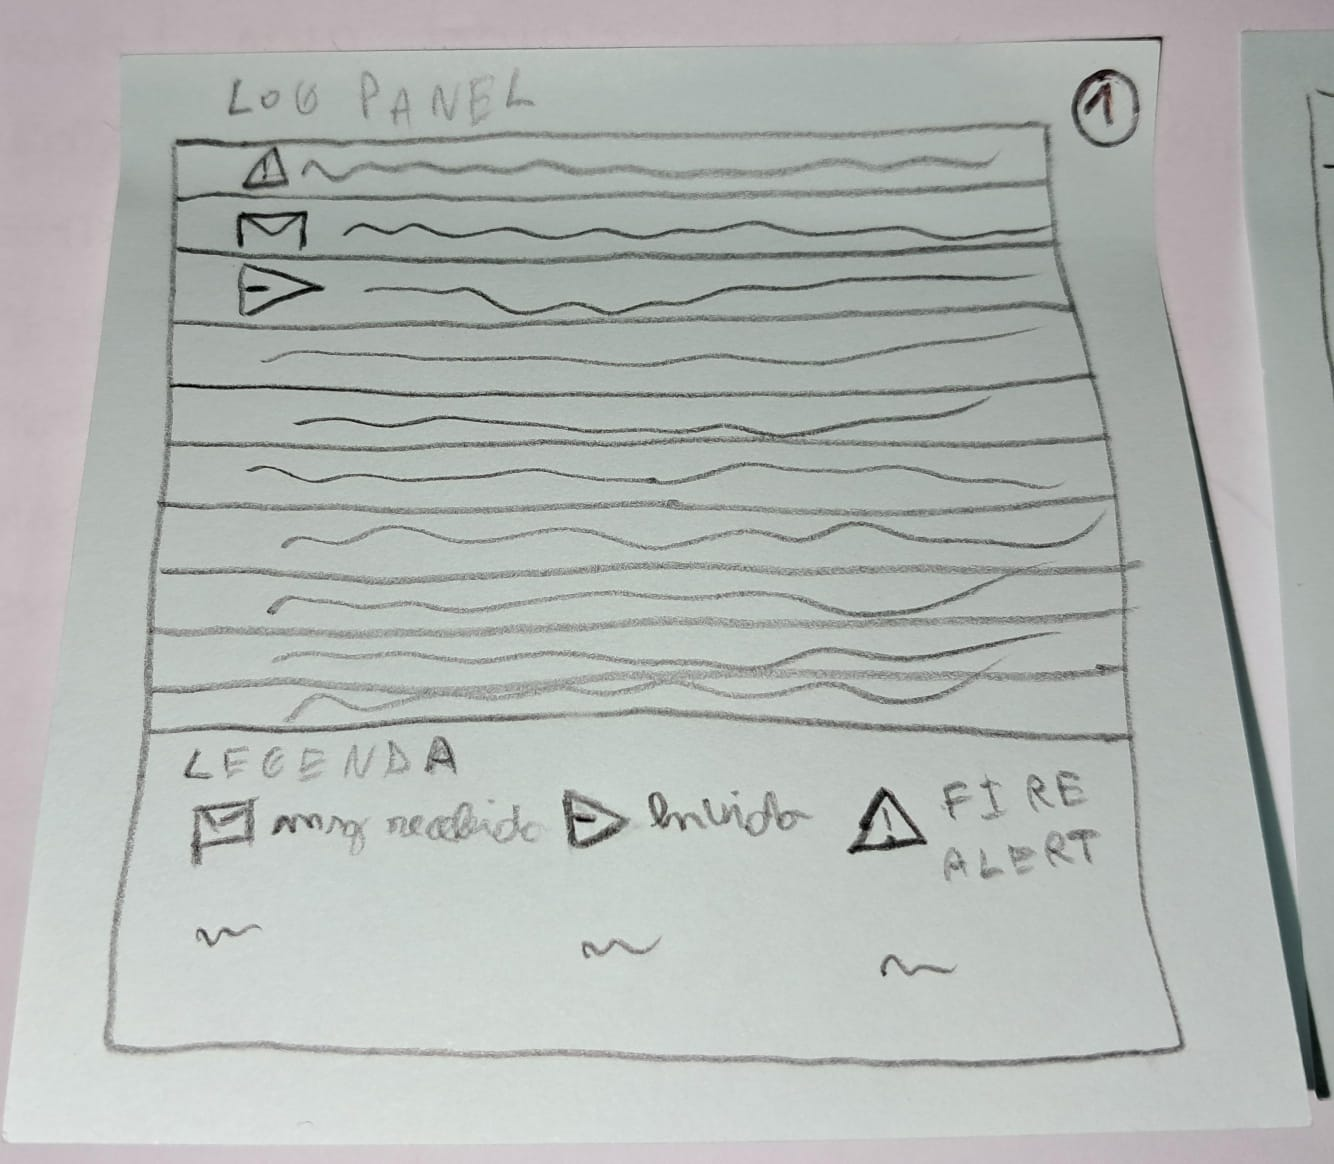 LOG PANEL
1
LEGENDA
msg recebido
Enviada
FIRE
ALERT